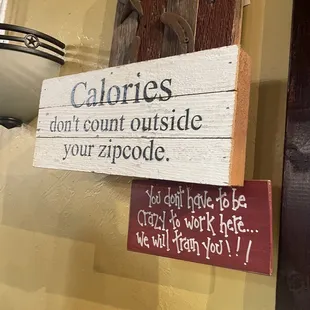 Calories
don't count outside
your zipcode.
You don't have to be
Crazy to work here...
we will train you!!!